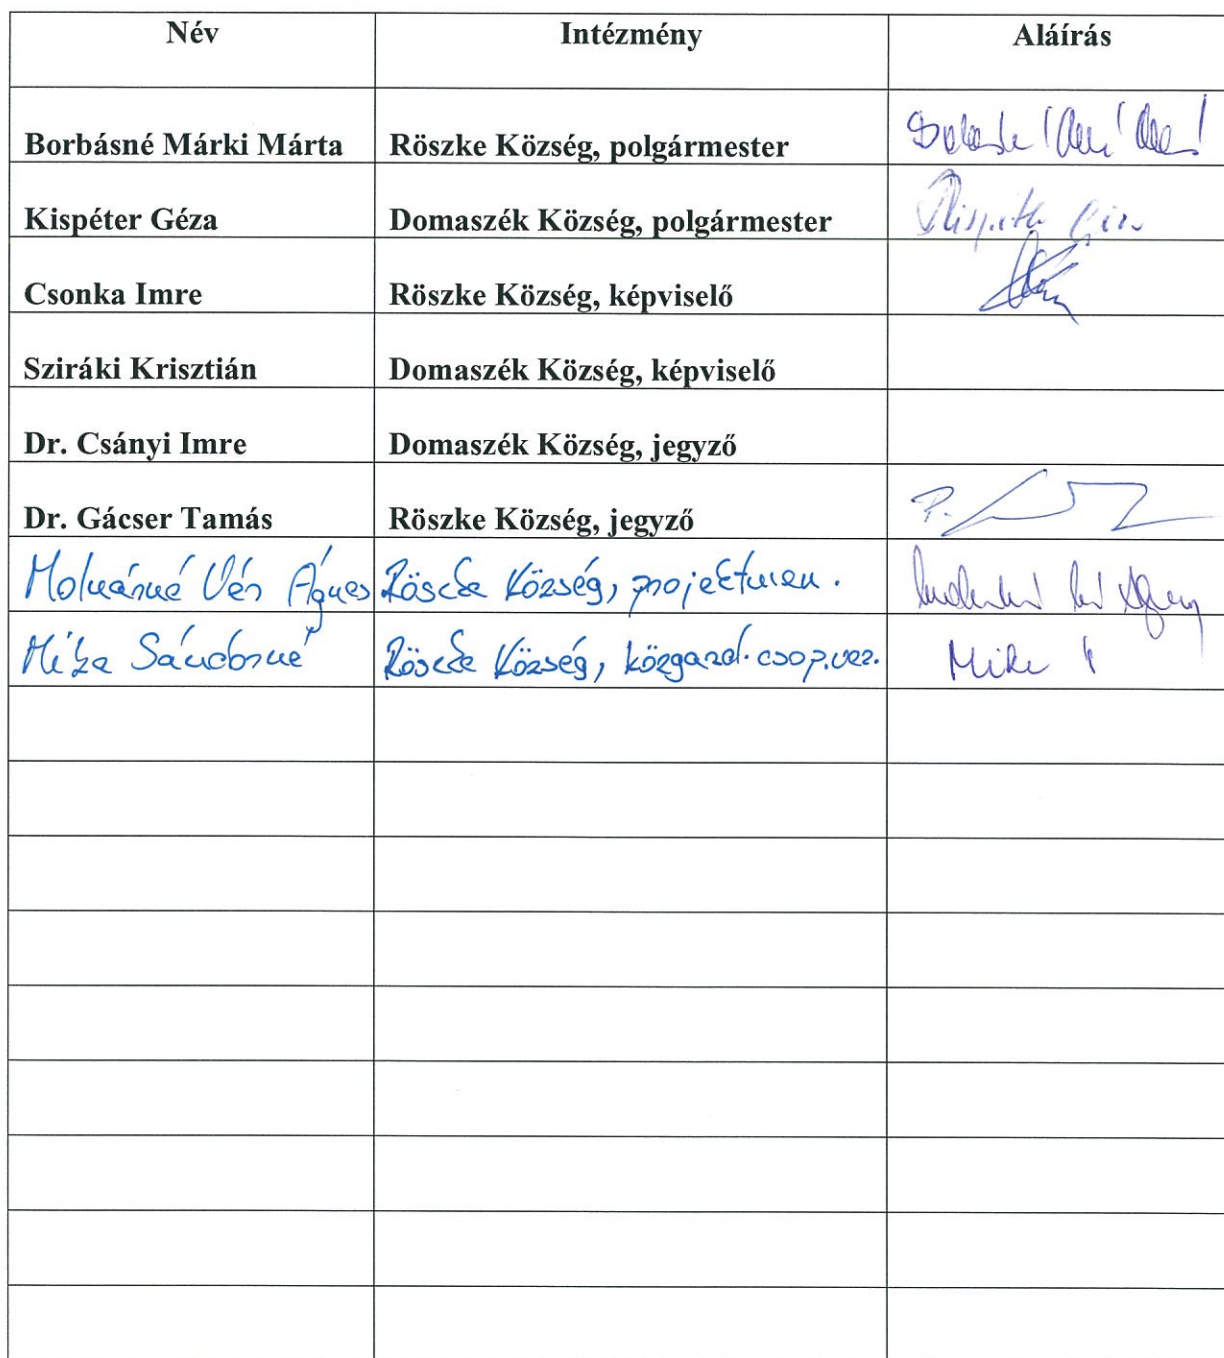 Név Intézmény Aláírás
Borbásné Márki Márta Röszke Község, polgármester
Kispéter Géza Domaszék Község, polgármester
Csonka Imre Röszke Község, képviselő
Sziráki Krisztián Domaszék Község, képviselő
Dr. Csányi Imre Domaszék Község, jegyző
Dr. Gácser Tamás Röszke Község, jegyző
Molnárné Vér Ágnes Röszke Község, projektmen.
Mike Sándorné Röszke Község, közgazd. csop.vez. Mike